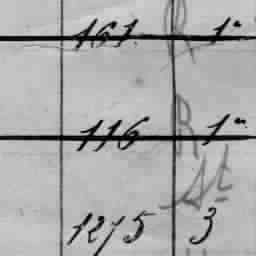 161. R 1a
116 R 1a
St
1275 3